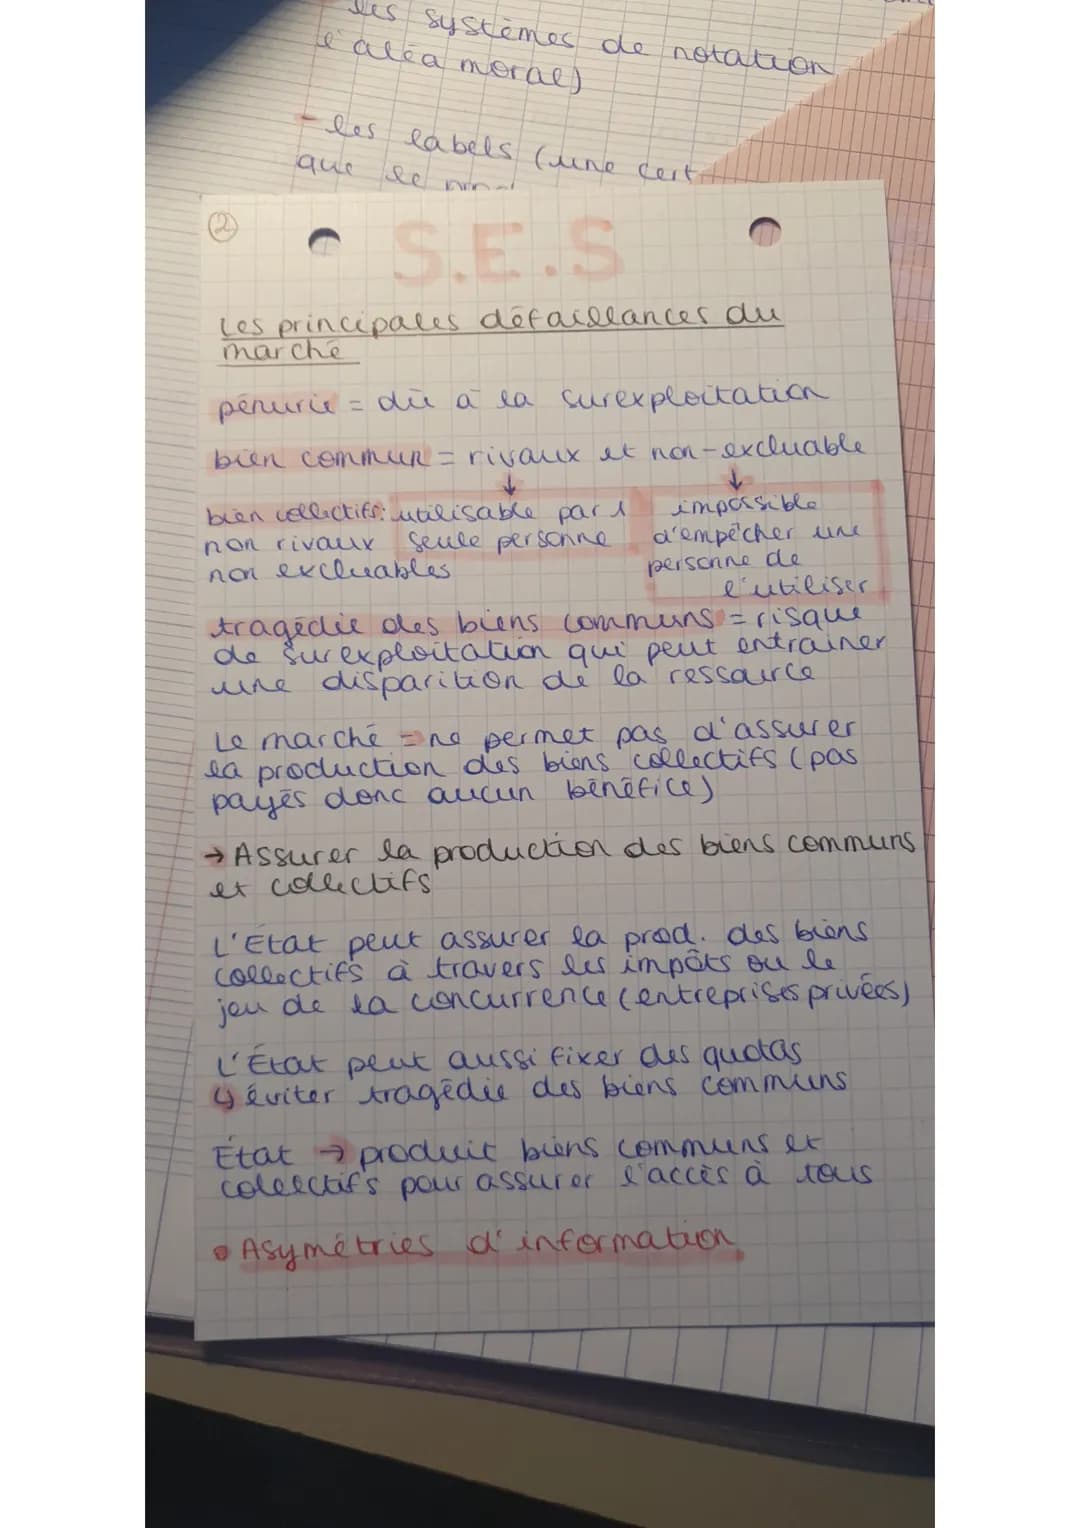 les systèmes de notation
l'aléa moral)
- les labels (une cert
que le
②
S.E.S
Les principales défaillances du
marché
pénurie = dû à la surexploitation
bien commun = rivaux et non-excluable
↓ ↓
bien collectifs: utilisable par 1 impossible
non rivaux seule personne d'empêcher une
non excluables personne de
l'utiliser
tragédie des biens communs = risque
de surexploitation qui peut entrainer
une disparition de la ressource
Le marché = ne permet pas d'assurer
la production des biens collectifs (pas
payés donc aucun bénéfice)
→ Assurer la production des biens communs
et collectifs
L'État peut assurer la prod. des biens
collectifs à travers les impôts ou le
jeu de la concurrence (entreprises privées)
L'État peut aussi fixer des quotas
↳ éviter tragédie des biens communs
État → produit biens communs et
collectifs pour assurer l'accès à tous
• Asymétries d'information